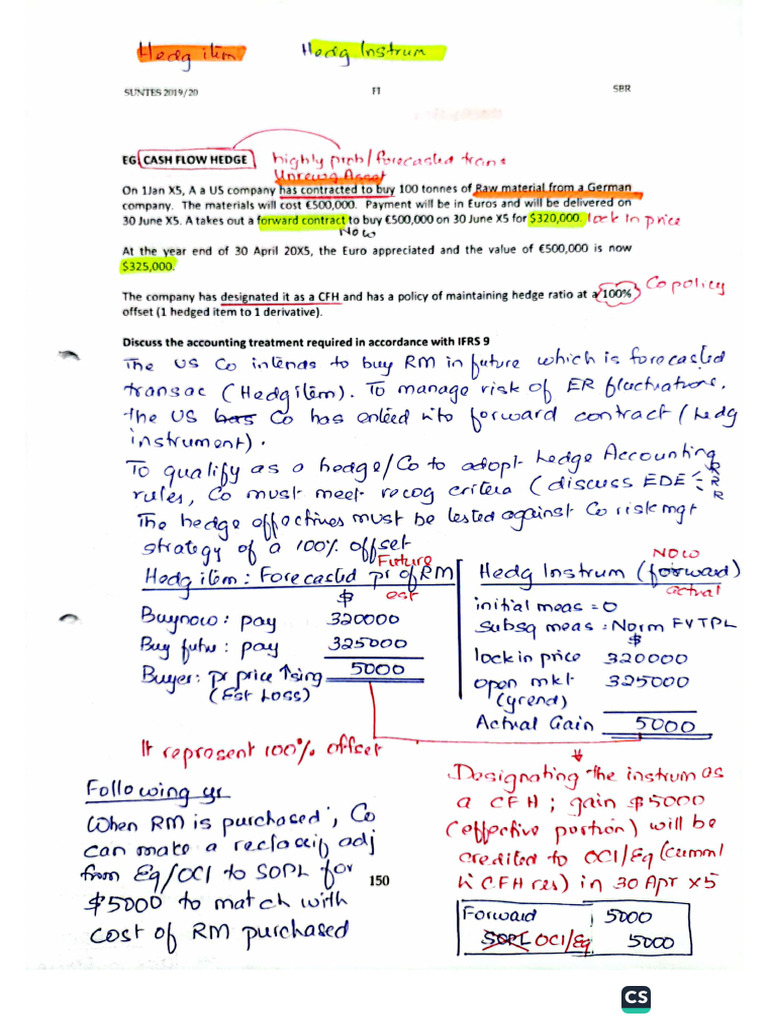 Hedg item Hedg Instrum
SUNTES 2019/20 FI SBR
EG CASH FLOW HEDGE highly prob/forecasted trans
Unrecog Asset
On 1Jan X5, A a US company has contracted to buy 100 tonnes of Raw material from a German
company. The materials will cost €500,000. Payment will be in Euros and will be delivered on
30 June X5. A takes out a forward contract to buy €500,000 on 30 June X5 for $320,000. lock In price
Now
At the year end of 30 April 20X5, the Euro appreciated and the value of €500,000 is now
$325,000.
The company has designated it as a CFH and has a policy of maintaining hedge ratio at a 100% Co policy
offset (1 hedged item to 1 derivative).
Discuss the accounting treatment required in accordance with IFRS 9
The US Co intends to buy RM in future which is forecasted
transac (Hedg item). To manage risk of ER fluctuations,
the US has Co has enteed into forward contract (hedg
instrument).
To qualify as a hedge/Co to adopt hedge Accounting
rules, Co must meet recog criteria (discuss EDE R
R
R
The hedge effectives must be tested against Co risk mgt
strategy of a 100% offset
Future
Hedg item: Forecasted pr of RM
$ est
Buy now: pay 320000
Buy futu: pay 325000
Buyer: pr price ↑sing 5000
(Est Loss)
It represent 100% offset
NOW
Hedg Instrum (forward)
actual
initial meas = 0
Subsq meas: Norm FVTPL
$
lock in price 320000
open mkt 325000
(yrend)
Actual Gain 5000
Designating the instrum as
a CFH; gain $5000
(effective portion) will be
credited to OCI/Eq (Cumml
in CFH res) in 30 Apr X5
Forward 5000
SOPL OCI/Eq 5000
Following yr
When RM is purchased, Co
can make a reclassif adj
from Eq/OCI to SOPL for
$5000 to match with
cost of RM purchased
150
CS